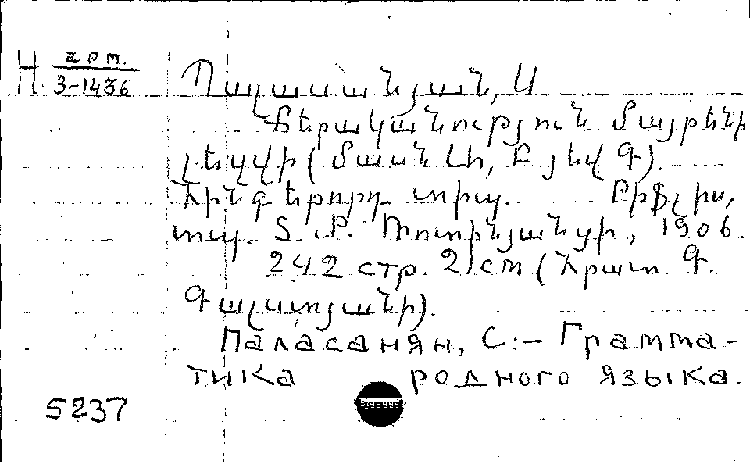 Н арт.
3-1436
Պալասանյան, Ս
Քերականություն մայրենի
լեզվի (մասն Ա, Բ յեվ Գ).
Հինգերորդ տիպ. Թիֆլիս,
տպ. Տ. Մ. Ռոտինյանցի, 1906.
242 стр. 21 см (Հրատ. Գ.
Գալստյանի).
Паласанян, С:- Грамма-
тика родного языка.
5237